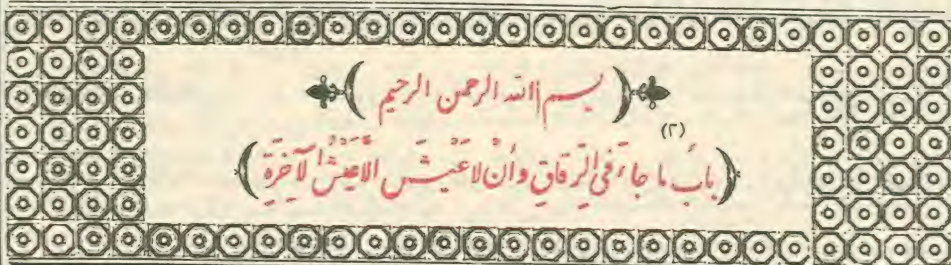 ﴿ بسم الله الرحمن الرحيم ﴾
(٢)
﴿ بابُ ما جاءَ في الرِّقاقِ وأنْ لا عَيْشَ إلَّا عَيْشُ الآخِرَةِ ﴾